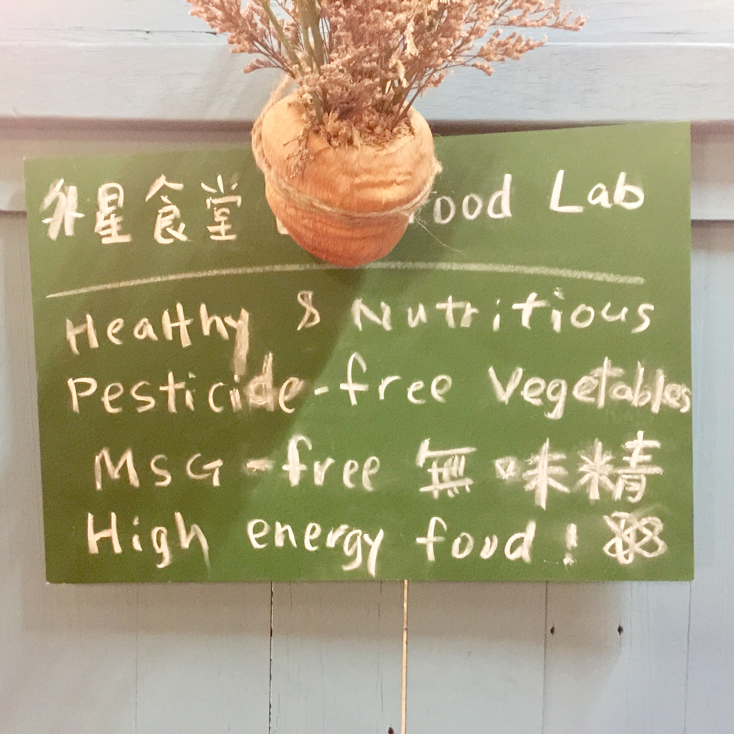 外星食堂 ood Lab
Healthy & Nutritious
Pesticide-free Vegetables
MSG-free 無味精
High energy food!